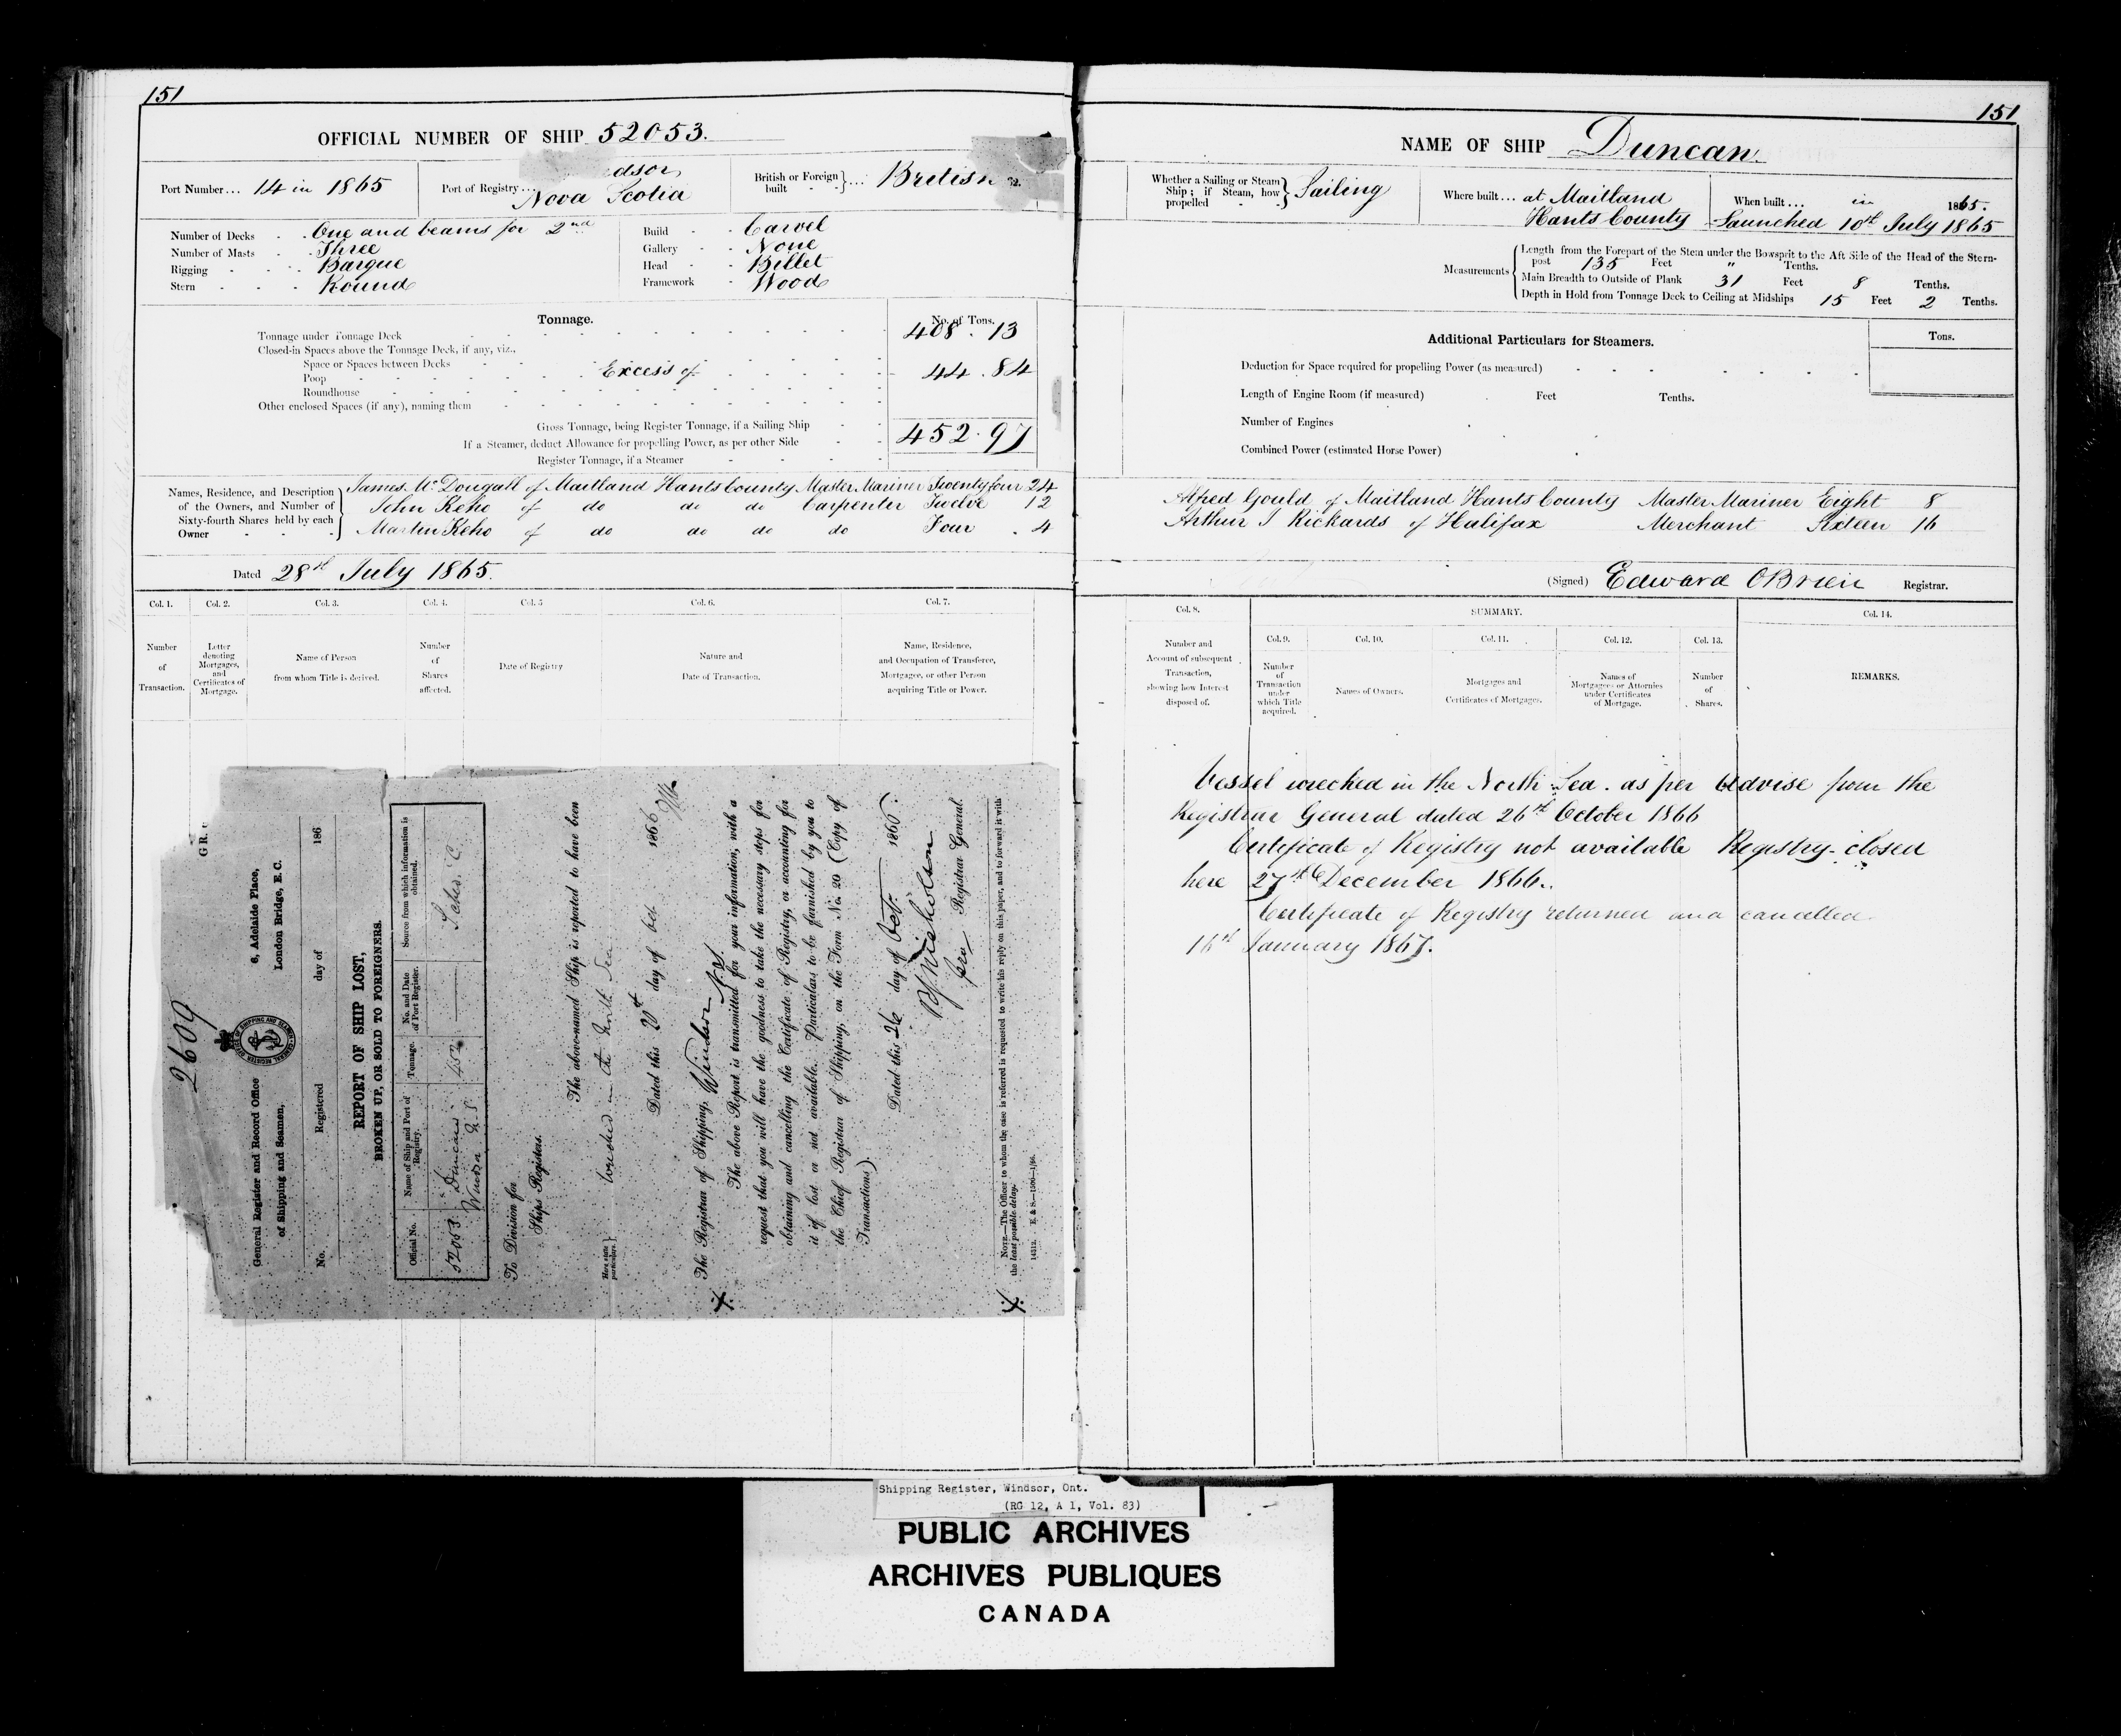 151
OFFICIAL NUMBER OF SHIP 52053.
Port Number... 14 in 1865
Port of Registry... dsor,
Nova Scotia
British or Foreign built } ... British
Number of Decks One and beams for 2nd
Number of Masts Three
Rigging Barque
Stern Round
Build Carvel
Gallery None
Head Billet
Framework Wood
Tonnage.
No. of Tons.
Tonnage under Tonnage Deck 408.13
Closed-in Spaces above the Tonnage Deck, if any, viz.,
Space or Spaces between Decks
Poop Excess of 44.84
Roundhouse
Other enclosed Spaces (if any), naming them
Gross Tonnage, being Register Tonnage, if a Sailing Ship 452.97
If a Steamer, deduct Allowance for propelling Power, as per other Side
Register Tonnage, if a Steamer
Names, Residence, and Description of the Owners, and Number of Sixty-fourth Shares held by each Owner
James McDougall of Maitland Hants County Master Mariner Twenty four 24
John Keho of do do do Carpenter Twelve 12
Martin Keho of do do do do Four 4
Dated 28th July 1865.
Col. 1.
Number of Transaction.
Col. 2.
Letter denoting Mortgages, and Certificates of Mortgage.
Col. 3.
Name of Person from whom Title is derived.
Col. 4.
Number of Shares affected.
Col. 5
Date of Registry
Col. 6.
Nature and Date of Transaction.
Col. 7.
Name, Residence, and Occupation of Transferee, Mortgagee, or other Person acquiring Title or Power.
2609
General Register and Record Office
of Shipping and Seamen,
6, Adelaide Place,
London Bridge, E.C.
No. Registered day of 186
REPORT OF SHIP LOST,
BROKEN UP, OR SOLD TO FOREIGNERS.
Official No.
Name of Ship and Port of Registry.
Tonnage.
No. and Date of Port Register.
Source from which information is obtained.
52053
Duncan
Windsor N.S.
452
To Division for
Ships Registers.
The above-named Ship is reported to have been
Here state particulars.
Wrecked in the North Sea
Dated this 20th day of Oct 1866
The Registrar of Shipping, Windsor N.S.
The above Report is transmitted for your information, with a
request that you will have the goodness to take the necessary steps for
obtaining and cancelling the Certificate of Registry, or accounting for
it if lost or not available. Particulars to be furnished by you to
the Chief Registrar of Shipping, on the Form No. 20 (Copy of
Transactions).
Dated this 26 day of Oct 1866.
Nicholson
for Registrar General.
NOTE.—The Officer to whom the case is referred is requested to write his reply on this paper, and to forward it with
the least possible delay.
14312. E & S.—1500—1/66.
151
NAME OF SHIP Duncan
Whether a Sailing or Steam Ship; if Steam, how propelled } Sailing
Where built... at Maitland
Hants County
When built... in 1865.
Launched 10th July 1865
Measurements
Length from the Forepart of the Stem under the Bowsprit to the Aft Side of the Head of the Stern-
post 135 Feet " Tenths.
Main Breadth to Outside of Plank 31 Feet 8 Tenths.
Depth in Hold from Tonnage Deck to Ceiling at Midships 15 Feet 2 Tenths.
Additional Particulars for Steamers.
Tons.
Deduction for Space required for propelling Power (as measured)
Length of Engine Room (if measured) Feet Tenths.
Number of Engines
Combined Power (estimated Horse Power)
Alfred Gould of Maitland Hants County Master Mariner Eight 8
Arthur J Rickards of Halifax Merchant Sixteen 16
(Signed) Edward OBrien Registrar.
Col. 8.
Number and Account of subsequent Transaction, showing how Interest disposed of.
SUMMARY.
Col. 9.
Number of Transaction under which Title acquired.
Col. 10.
Names of Owners.
Col. 11.
Mortgages and Certificates of Mortgages.
Col. 12.
Names of Mortgagees or Attornies under Certificates of Mortgage.
Col. 13.
Number of Shares.
Col. 14.
REMARKS.
Vessel wrecked in the North Sea. as per advise from the
Registrar General dated 26th October 1866
Certificate of Registry not available Registry closed
here 27th December 1866.
Certificate of Registry returned and cancelled
16th January 1867.
Shipping Register, Windsor, Ont.
(RG 12, A 1, Vol. 83)
PUBLIC ARCHIVES
ARCHIVES PUBLIQUES
CANADA